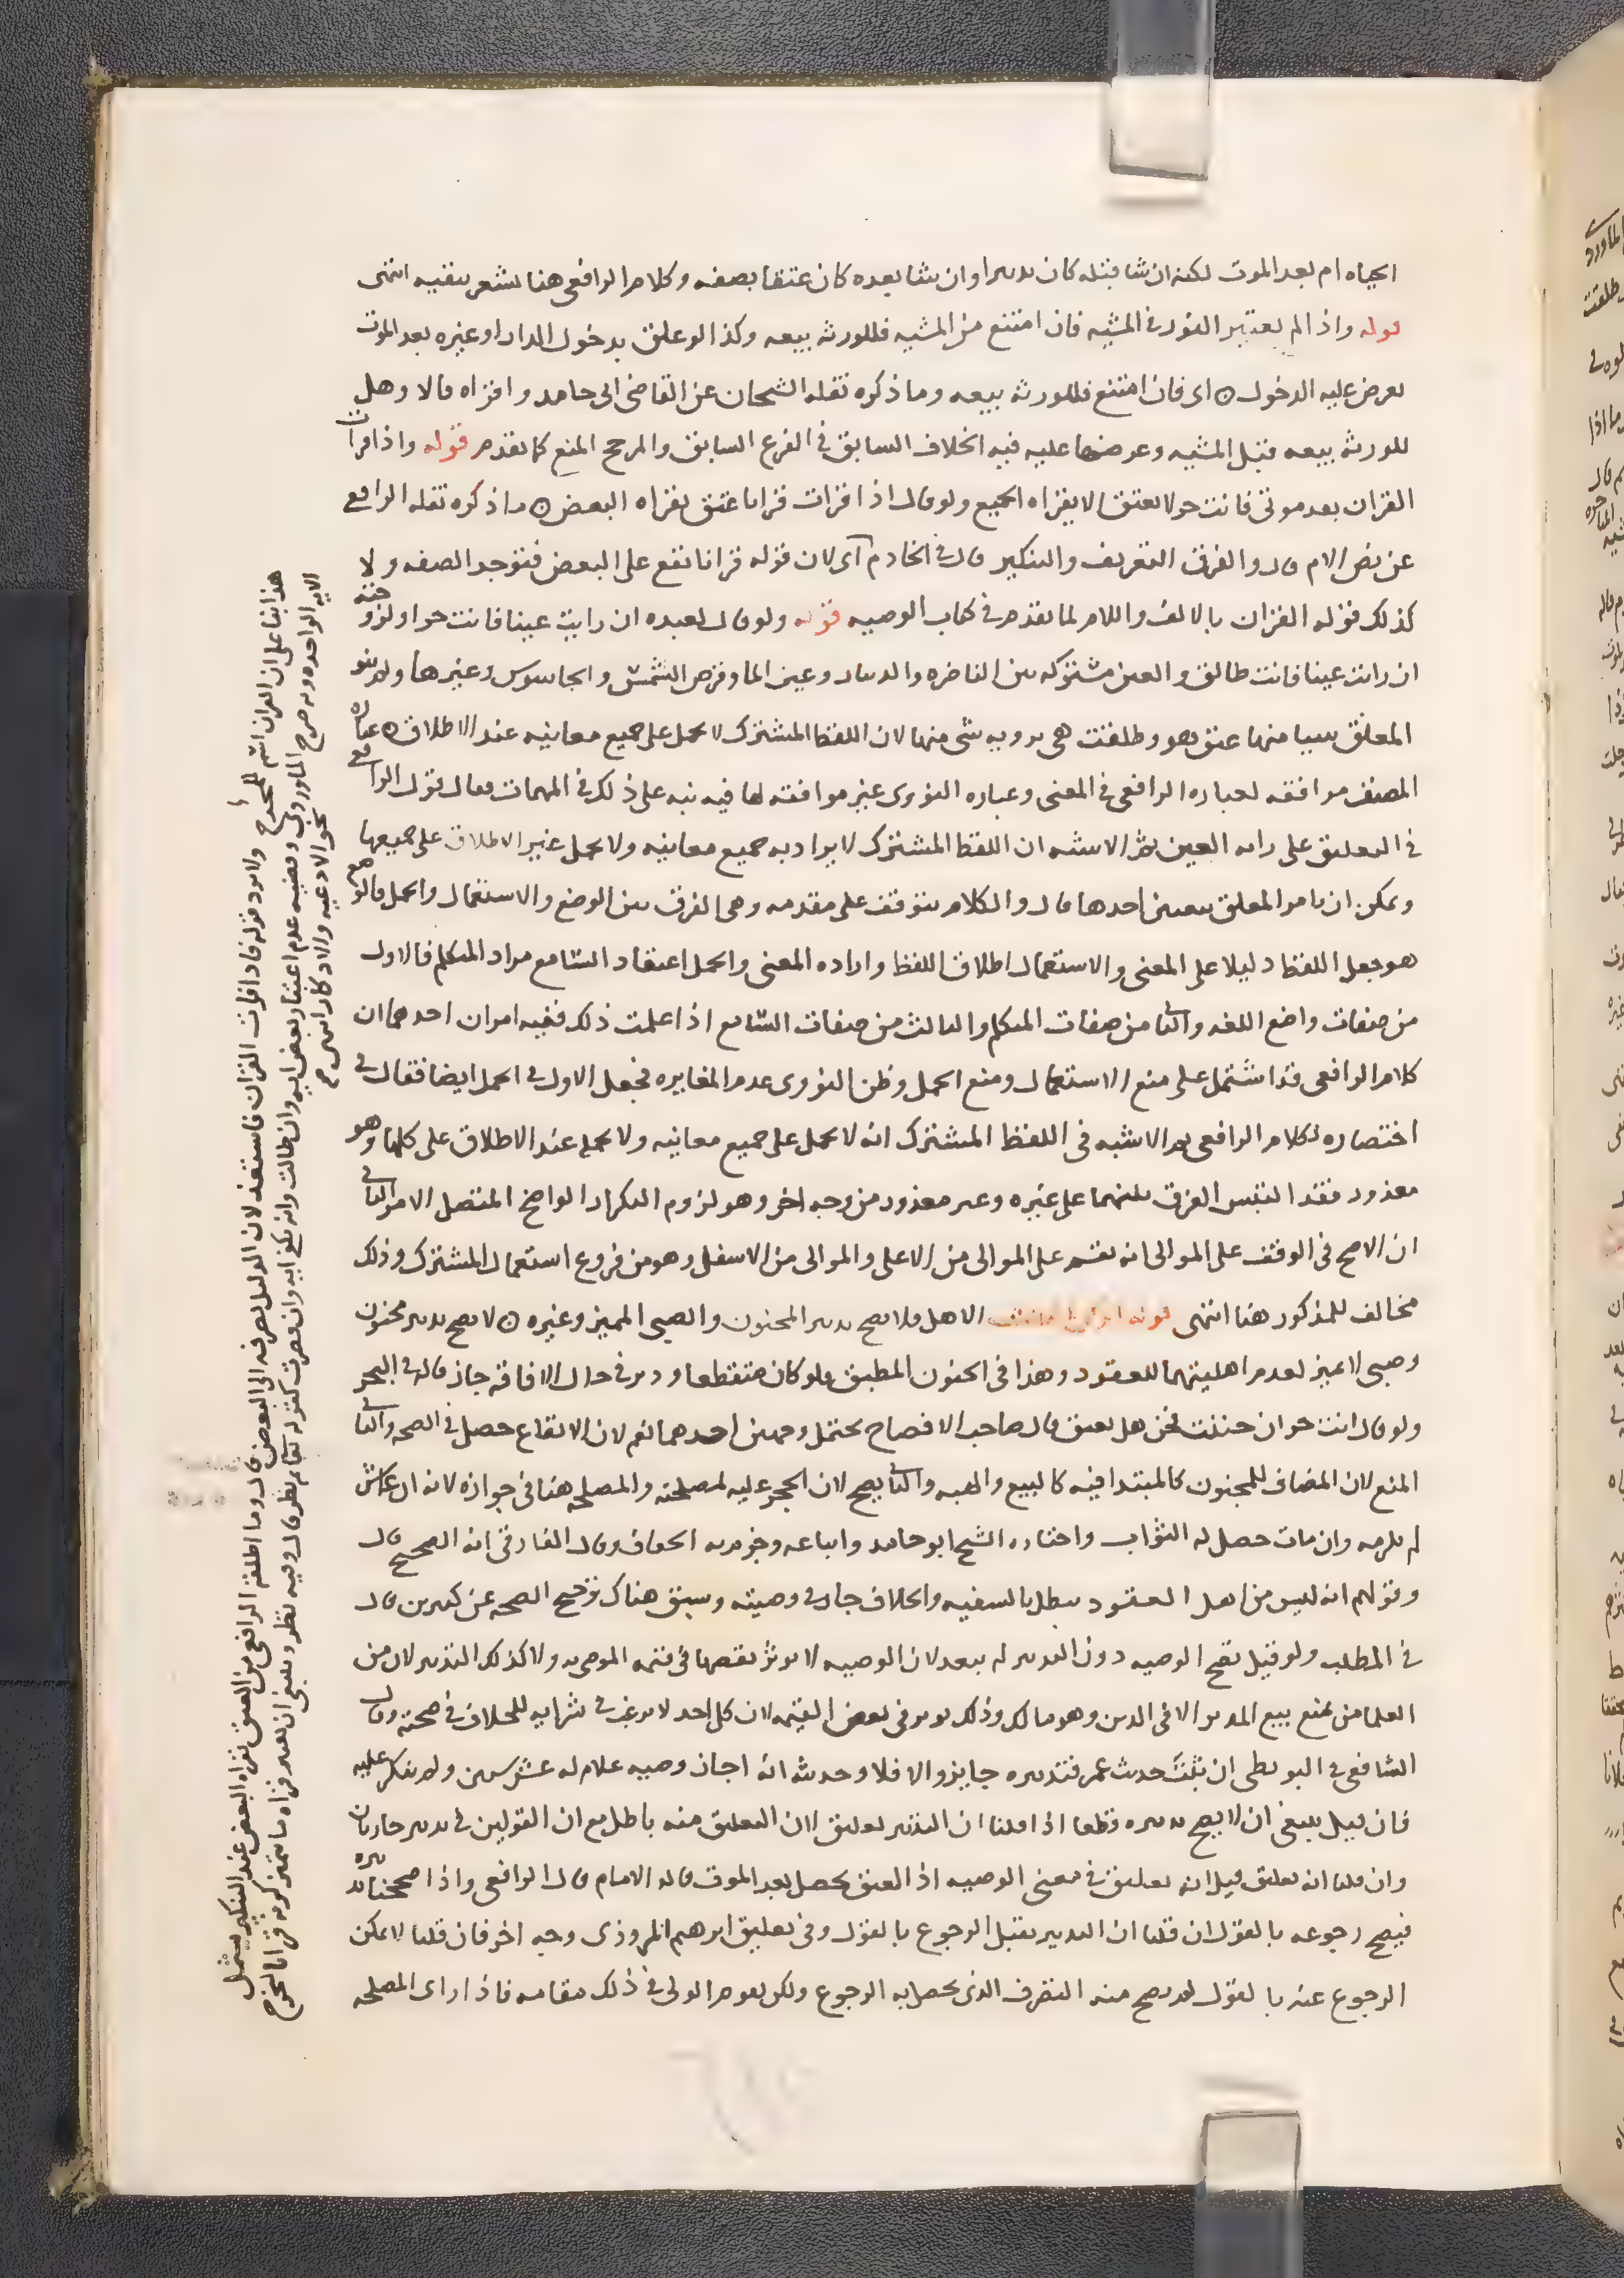 الحياه ام بعد الموت لكنه ان شا قبله كان تدبيرا وان شا بعده كان عتقا بصفه وكلام الرافعي هنا يشعر بنفيه انتهى
قوله واذا لم يعتبر الفور في المشيه فان امتنع من المشيه فللورثه بيعه وكذا لو علق بدخول الدار او غيره بعد الموت
يعرض عليه الدخول ه اى فان امتنع فللورثه بيعه وما ذكره نقله الشيخان عن القاضى ابى حامد واقراه قالا وهل
للورثه بيعه قبل المشيه وعرضها عليه فيه الخلاف السابق في الفرع السابق والمرجح المنع كما تقدم قوله واذا قرات
القران بعد موتى فانت حر لا يعتق الا بقراه الجميع ولو قال اذا قرات قرانا عتق بقراه البعض ه ما ذكره نقله الرافعي
عن نص الام قال والفرق التعريف والتنكير قال في الخادم اى لان قوله قرانا تقع على البعض فتوجد الصفه ولا
كذلك قوله القران بالالف واللام لما تقدم في كتاب الوصيه قوله ولو قال لعبده ان رايت عينا فانت حر او لزوجته
ان رايت عينا فانت طالق والعين مشتركه بين الناضره والدينار وعين الما وقرص الشمس والجاسوس وغيرها ولم ينو
المعلق شيا منها عتق هو وطلقت هى برويه شى منها لان اللفظ المشترك لا يحمل على جميع معانيه عند الاطلاق ه عباره
المصنف موافقه لعباره الرافعي في المعنى وعباره النووى غير موافقته لها فيه نبه على ذلك في المهمات فقال قول الرافعي
في التعليق على رايه العين ثم الاشبه ان اللفظ المشترك لا يراد به جميع معانيه ولا يحمل عنير الاطلاق على جميعها
ويمكن ان يامر المعلق بتعيين احدها قال والكلام يتوقف على مقدمه وهى الفرق بين الوضع والاستعمال والحمل فالوضع
هو جعل اللفظ دليلا على المعنى والاستعمال اطلاق اللفظ واراده المعنى والحمل اعتقاد السامع مراد المتكلم فالاول
من صفات واضع اللغه والثانى من صفات المتكلم والثالث من صفات السامع اذا علمت ذلك ففيه امران احدهما ان
كلام الرافعي قد اشتمل على منع الاستعمال ومنع الحمل وظن النووى عدم المغايره فجعل الاول في الحمل ايضا فقال في
اختصاره لكلام الرافعي الاشبه في اللفظ المشترك انه لا يحمل على جميع معانيه ولا يحمل عند الاطلاق على كلها وهو
معذور فقد التبس الفرق بينهما على غيره وغير معذور من وجه اخر وهو لزوم التكرار الواضح المتصل الامر الثانى
ان الاصح في الوقف على الموالى انه يقسم على الموالى من الاعلى والموالى من الاسفل وهو من فروع استعمال المشترك وذلك
مخالف للمذكور هنا انتهى قوله الاهل فلا يصح تدبير المجنون والصبى المميز وغيره ه لا يصح تدبير مجنون
وصبى لا يميز لعدم اهليتهما للعقود وهذا في الجنون المطبق فلو كان متقطعا ودبر في حال الافاقه جاز قاله في البحر
ولو قال انت حر ان جننت فجن هل يعتق قال صاحب الافصاح يحتمل وجهين احدهما نعم لان الايقاع حصل في الصحه والثانى
المنع لان المضاف للمجنون كالمبتدا فيه كالبيع والهبه والثانى يصح لان الحجر عليه لمصلحته والمصلحه هنا في جوازه لانه ان عاش
لم يلزمه وان مات حصل له الثواب واختاره الشيخ ابو حامد واتباعه وجزم به الخفاف وقال الفارقى انه الصحيح قال
وقولهم انه ليس من اهل العقود يبطل بالسفيه والخلاف جار في وصيته وسبق هناك ترجيح الصحه عن كثيرين قال
في المطلب ولو قيل تصح الوصيه دون التدبير لم يبعد لان الوصيه لا يوثر نقصها في قيمه الموصى به ولا كذلك التدبير لان من
العلما من يمنع بيع المدبر الا في الدين وهو مالك وذلك يوثر في بعض القيمه لان كل احد لا يرغب في شرايه للخلاف في صحته وقال
الشافعي في البويطى ان ثبت حديث عمر فتدبيره جايز والا فلا وحديثه انه اجاز وصيه غلام له عشر سنين ولم ينكر عليه
فان قيل ينبغى ان لا يصح تدبيره قطعا اذا قلنا ان التدبير تعليق لان التعليق منه باطل مع ان القولين في تدبيره جاريان
وان قلنا انه تعليق قيل انه تعليق في معنى الوصيه اذ العتق يحصل بعد الموت قاله الامام قال الرافعي واذا صححنا تدبيره
فيصح رجوعه بالقول ان قلنا ان التدبير يقبل الرجوع بالقول وفى تعليق ابرهيم المروذى وجه اخر فان قلنا لا يمكن
الرجوع عنه بالقول لم يصح منه التصرف الذى يحصل به الرجوع ولكن يقوم الولى في ذلك مقامه فاذا راى المصلحه
هذا بنا على ان القران اسم للمجموع ولا يرد قوله فاذا قرات القران فاستعذ لان الدليل صرفه الى البعض قال وما اطلقه الرافعي من العتق بقراه البعض عند التنكير يشمل
الايه الواحده وبه صرح الماوردى وقضيه عدم اعتبار بعض ايه وان طالت وانه تكفى ايه وان قصرت كقوله تعالى ثم نظر قال وفيه نظر وينبغى ان يعتبر قراه ما يتميز كونه قرانا ليخرج
نحو الادعيه والاذكار انتهى